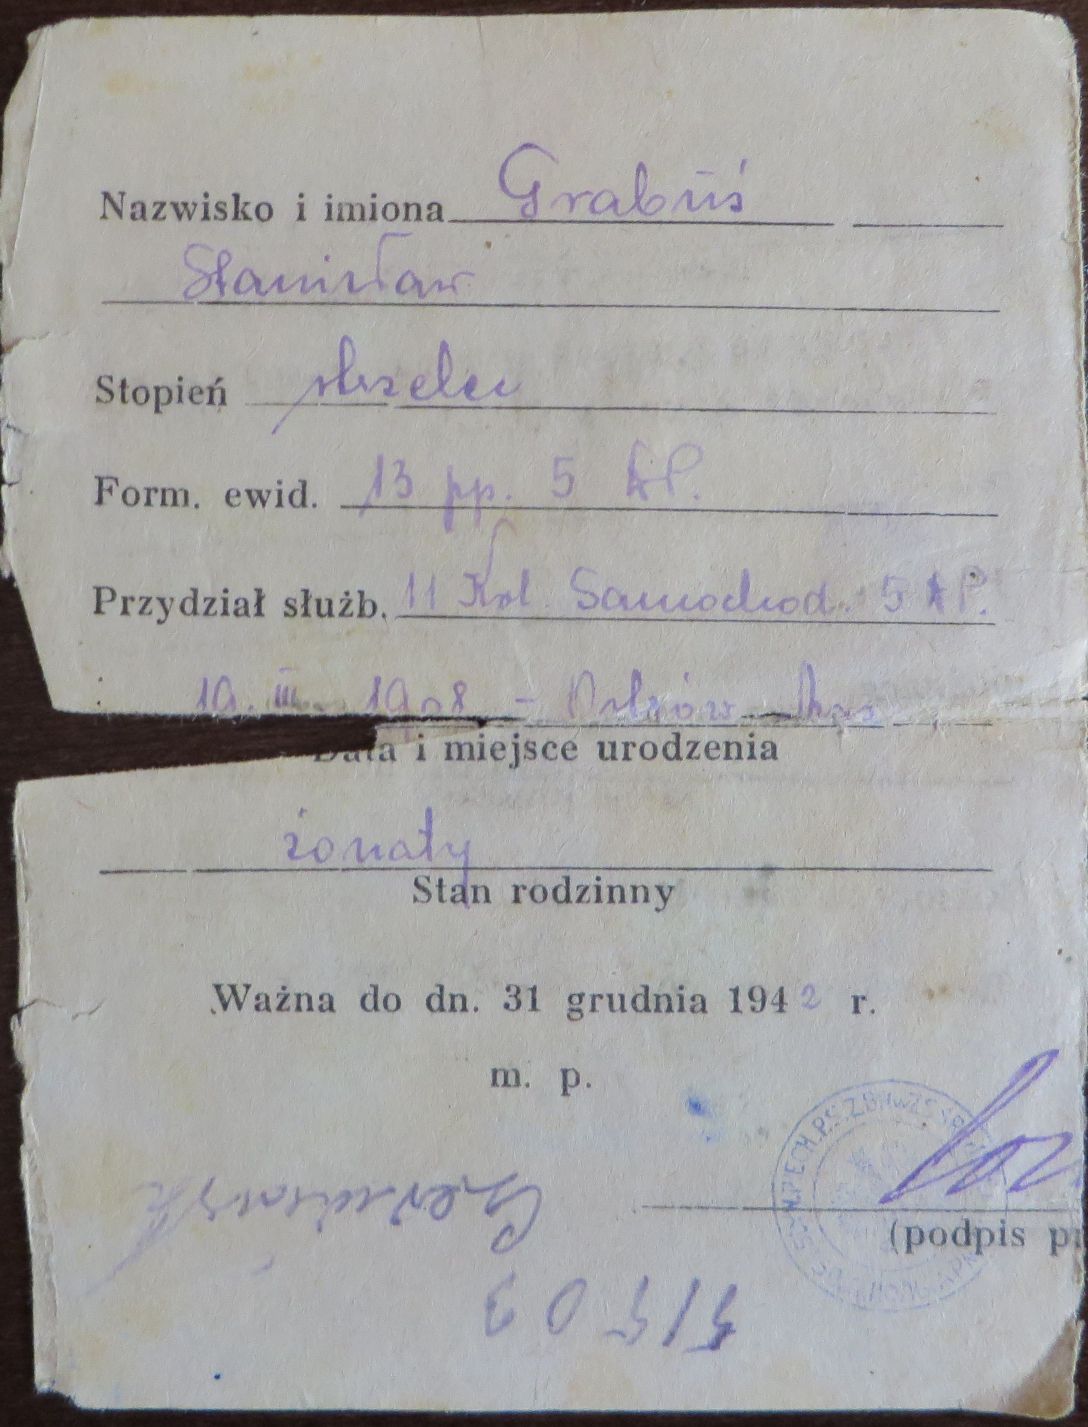 Nazwisko i imiona Grabuś
Stanisław
Stopień strzelec
Form. ewid. 13 pp. 5 DP.
Przydział służb. 11 Kol. Samochod. 5 DP.
19. III. 1908 -
Data i miejsce urodzenia
żonaty
Stan rodzinny
Ważna do dn. 31 grudnia 1942 r.
m. p.
(podpis